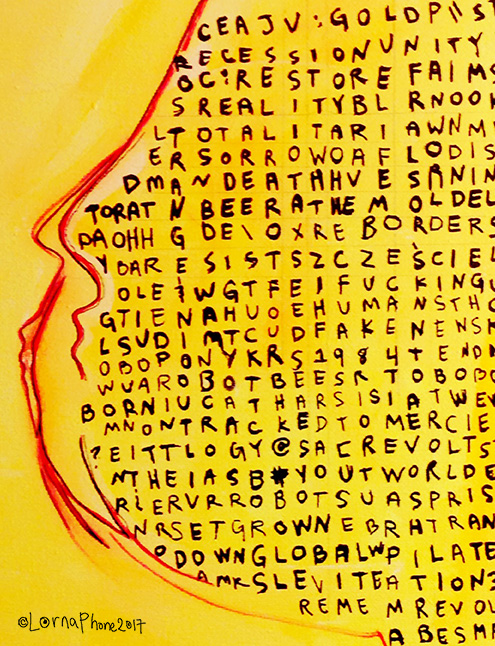 CEAJV:GOLDP\\ST
RECESSIONUNITY
OC:RESTOREFAIMS
SREALITYBLRNOOK
LTOTALITARIAWNM
ERSORROWOAFLODIS
DMANDEATHHVESANIN
TORATNBEERATHEMOLDEL
PAOHHGDEIOXREBORDERS
YBARESISTSZCZESCIEL
OLE WGTFEIFUCKINGU
GTIENAHUOEHUMANSTHO
LSUDIMTCUDFAKENENSH
OBOPONYKRS1984TEND
WUAROBOTBEESRTOBOBO
BORNIUCATHARSISIATWEV
MNONTRACKEDTOMERCIE
?EITTLOGY@SACREVOLTS
NTHEIASB*YOUTWORLDE
RIERVRROBOTSUASPRIS
NRSETGROWNEBRHTRAN
ODOWNGLOBALWPILATE
AMKSLEVITEATION
REMEMREVOL
ABESMA
©LornaPhone2017